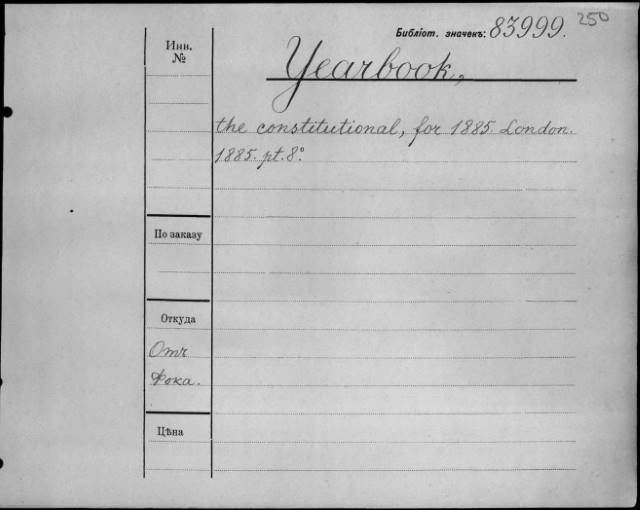 250
Библіот. значекъ: 83999.
Инв.
№
Yearbook,
the constitutional, for 1885. London.
1885. pt. 8°.
По заказу
Откуда
Отъ
Фока.
Цѣна